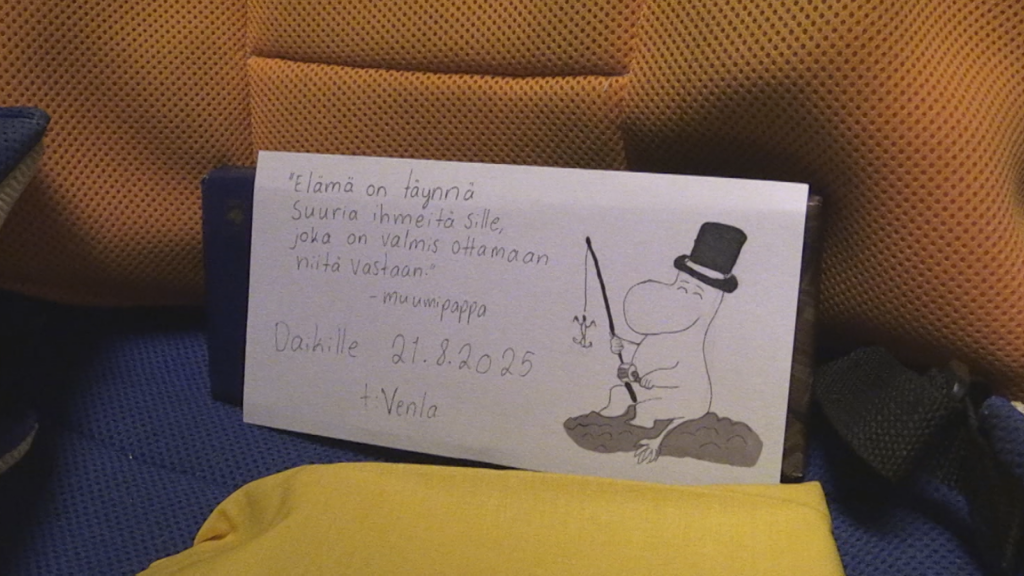 "Elämä on täynnä
suuria ihmeitä sille,
joka on valmis ottamaan
niitä vastaan."
-muumipappa
Daikille 21.8.2025
t:Venla